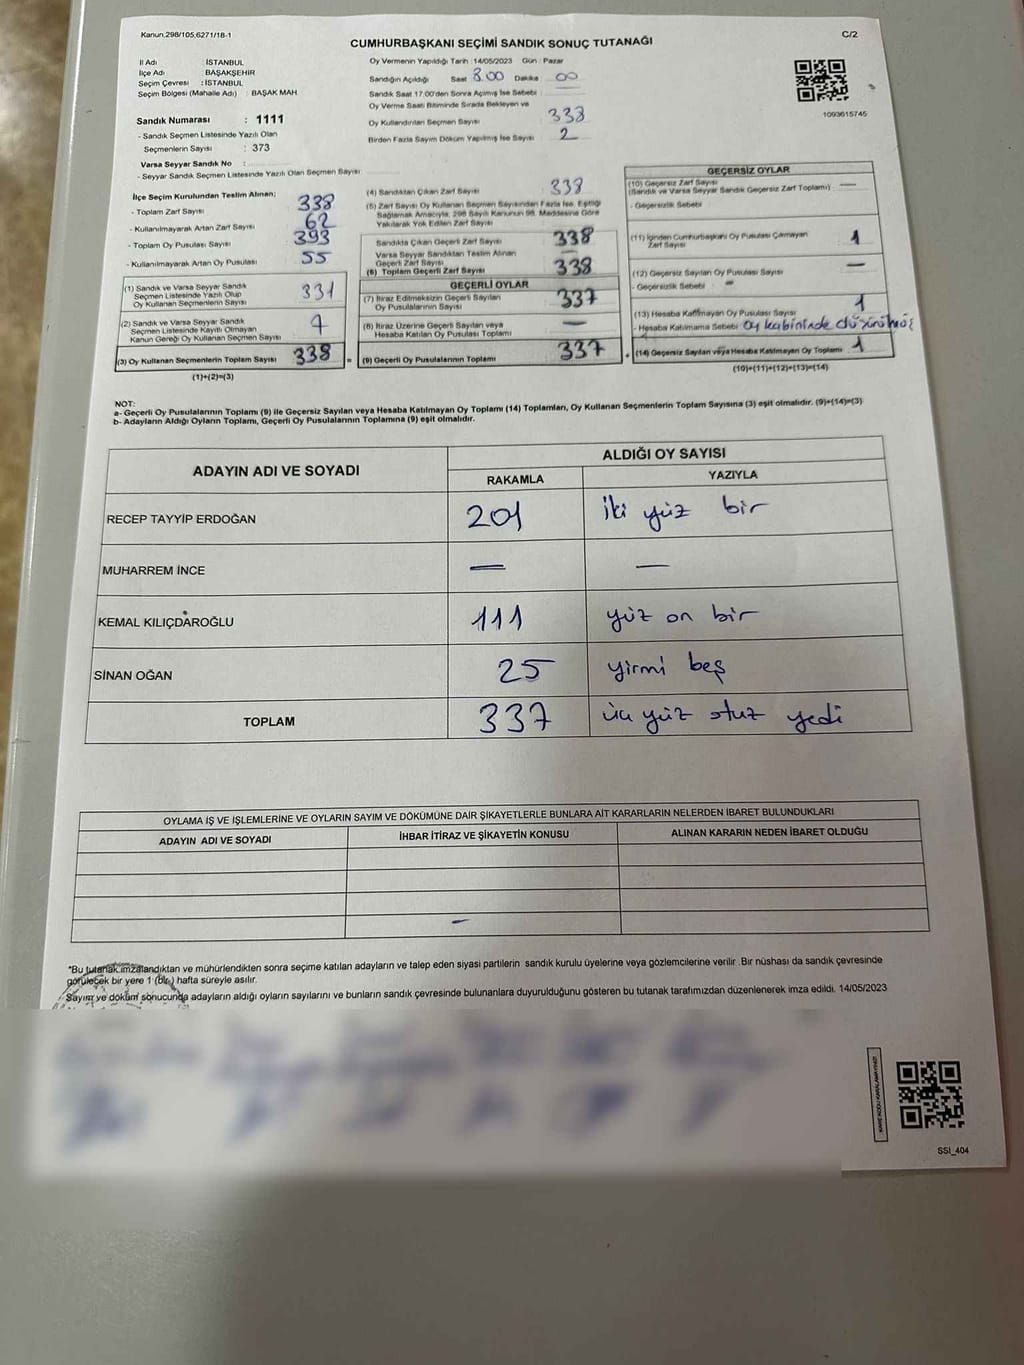 Kanun,298/105,6271/18-1
C/2
CUMHURBAŞKANI SEÇİMİ SANDIK SONUÇ TUTANAĞI
İl Adı : İSTANBUL
İlçe Adı : BAŞAKŞEHİR
Seçim Çevresi : İSTANBUL
Seçim Bölgesi (Mahalle Adı) : BAŞAK MAH
Sandık Numarası : 1111
- Sandık Seçmen Listesinde Yazılı Olan
Seçmenlerin Sayısı : 373
Varsa Seyyar Sandık No :
- Seyyar Sandık Seçmen Listesinde Yazılı Olan Seçmen Sayısı
Oy Vermenin Yapıldığı Tarih : 14/05/2023 Gün : Pazar
Sandığın Açıldığı Saat 8.00 Dakika 00
Sandık Saat 17.00'den Sonra Açılmış İse Sebebi
Oy Verme Saati Bitiminde Sırada Bekleyen ve
Oy Kullandırılan Seçmen Sayısı 338
Birden Fazla Sayım Döküm Yapılmış İse Sayısı 2
1093615745
İlçe Seçim Kurulundan Teslim Alınan;
- Toplam Zarf Sayısı 338
- Kullanılmayarak Artan Zarf Sayısı 62
- Toplam Oy Pusulası Sayısı 393
- Kullanılmayarak Artan Oy Pusulası 55
(1) Sandık ve Varsa Seyyar Sandık
Seçmen Listesinde Yazılı Olup
Oy Kullanan Seçmenlerin Sayısı 331
(2) Sandık ve Varsa Seyyar Sandık
Seçmen Listesinde Kayıtlı Olmayan
Kanun Gereği Oy Kullanan Seçmen Sayısı 7
(3) Oy Kullanan Seçmenlerin Toplam Sayısı 338 =
(1)+(2)=(3)
(4) Sandıktan Çıkan Zarf Sayısı 338
(5) Zarf Sayısı Oy Kullanan Seçmen Sayısından Fazla İse, Eşitliği
Sağlamak Amacıyla, 298 Sayılı Kanunun 98. Maddesine Göre
Yakılarak Yok Edilen Zarf Sayısı
Sandıkta Çıkan Geçerli Zarf Sayısı 338
Varsa Seyyar Sandıktan Teslim Alınan
Geçerli Zarf Sayısı —
(6) Toplam Geçerli Zarf Sayısı 338
GEÇERLİ OYLAR
(7) İtiraz Edilmeksizin Geçerli Sayılan
Oy Pusulalarının Sayısı 337
(8) İtiraz Üzerine Geçerli Sayılan veya
Hesaba Katılan Oy Pusulası Toplamı —
(9) Geçerli Oy Pusulalarının Toplamı 337 +
GEÇERSİZ OYLAR
(10) Geçersiz Zarf Sayısı —
(Sandık ve Varsa Seyyar Sandık Geçersiz Zarf Toplamı)
- Geçersizlik Sebebi
(11) İçinden Cumhurbaşkanı Oy Pusulası Çıkmayan
Zarf Sayısı 1
(12) Geçersiz Sayılan Oy Pusulası Sayısı —
- Geçersizlik Sebebi —
(13) Hesaba Katılmayan Oy Pusulası Sayısı 1
- Hesaba Katılmama Sebebi Oy kabininde düşürülmüş
(14) Geçersiz Sayılan veya Hesaba Katılmayan Oy Toplamı 1
(10)+(11)+(12)+(13)=(14)
NOT:
a- Geçerli Oy Pusulalarının Toplamı (9) ile Geçersiz Sayılan veya Hesaba Katılmayan Oy Toplamı (14) Toplamları, Oy Kullanan Seçmenlerin Toplam Sayısına (3) eşit olmalıdır. (9)+(14)=(3)
b- Adayların Aldığı Oyların Toplamı, Geçerli Oy Pusulalarının Toplamına (9) eşit olmalıdır.
ADAYIN ADI VE SOYADI
ALDIĞI OY SAYISI
RAKAMLA YAZIYLA
RECEP TAYYİP ERDOĞAN 201 iki yüz bir
MUHARREM İNCE — —
KEMAL KILIÇDAROĞLU 111 yüz on bir
SİNAN OĞAN 25 yirmi beş
TOPLAM 337 üç yüz otuz yedi
OYLAMA İŞ VE İŞLEMLERİNE VE OYLARIN SAYIM VE DÖKÜMÜNE DAİR ŞİKAYETLERLE BUNLARA AİT KARARLARIN NELERDEN İBARET BULUNDUKLARI
ADAYIN ADI VE SOYADI İHBAR İTİRAZ VE ŞİKAYETİN KONUSU ALINAN KARARIN NEDEN İBARET OLDUĞU
—
"Bu tutanak imzalandıktan ve mühürlendikten sonra seçime katılan adayların ve talep eden siyasi partilerin sandık kurulu üyelerine veya gözlemcilerine verilir .Bir nüshası da sandık çevresinde
görülecek bir yere 1 (bir) hafta süreyle asılır.
Sayım ve döküm sonucunda adayların aldığı oyların sayılarını ve bunların sandık çevresinde bulunanlara duyurulduğunu gösteren bu tutanak tarafımızdan düzenlenerek imza edildi. 14/05/2023
SSI_404